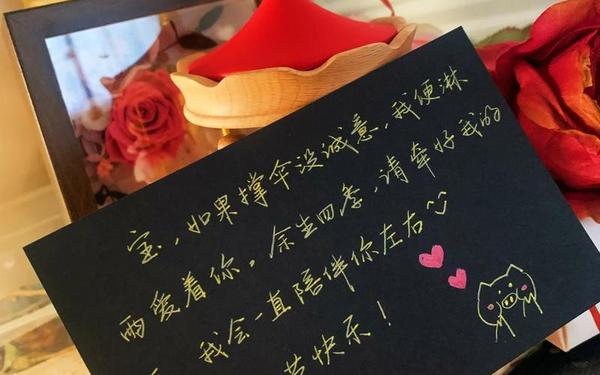 宝，如果撑伞没诚意，我便淋
雨爱着你。余生四季，请牵好我的
我会一直陪伴你左右
快乐！